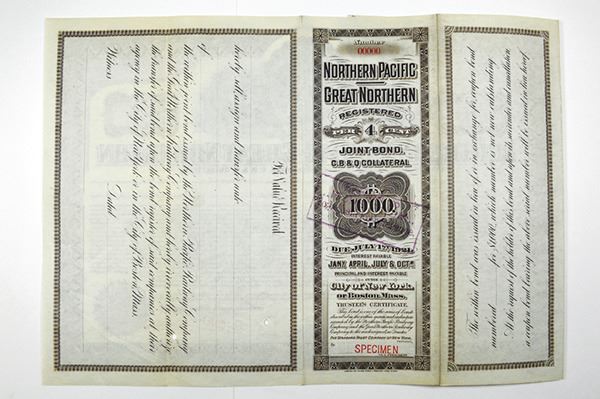 For Value Received
hereby sell, assign and transfer unto
of
the within bond issued by the Northern Pacific Railway Company
and the Great Northern Railway Company and hereby irrevocably authorize
the transfer of said bond upon the bond register of said companies at their
agency in the City of New York or in the City of Boston, Mass.
Dated
Witness
Number
00000
NORTHERN PACIFIC
GREAT NORTHERN
REGISTERED
PER 4 CENT
JOINT BOND,
C.B. & Q. COLLATERAL.
$
1000
DUE JULY 1ST 1921.
INTEREST PAYABLE
JANY, APRIL, JULY & OCT.
PRINCIPAL AND INTEREST PAYABLE
IN THE
City of New York,
or Boston, Mass.
TRUSTEE'S CERTIFICATE.
This bond is one of the issue of bonds
Company and the Great Northern Railway
THE STANDARD TRUST COMPANY OF NEW YORK,
By
SPECIMEN
The within bond was issued in lieu of or in exchange for coupon bond
numbered for $1,000, which number is not now outstanding.
At the request of the holder of this bond and upon its surrender and cancellation,
a coupon bond bearing the above serial number will be issued in lieu hereof.